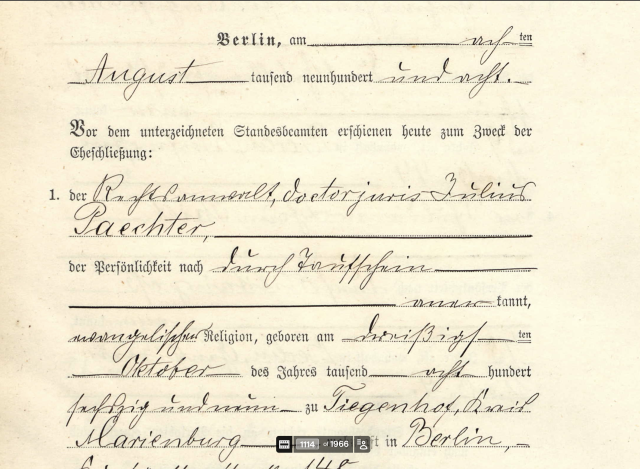 Berlin, am ach ten
August tausend neunhundert und acht.
Vor dem unterzeichneten Standesbeamten erschienen heute zum Zweck der
Eheschließung:
1. der Rechtsanwalt, doctor juris Julius
Paechter,
der Persönlichkeit nach durch Taufschein
aner kannt,
evangelischen Religion, geboren am dreißigs ten
Oktober des Jahres tausend acht hundert
sechszig und neun zu Tiegenhof, Kreis
Marienburg t in Berlin,
1114 of 1966